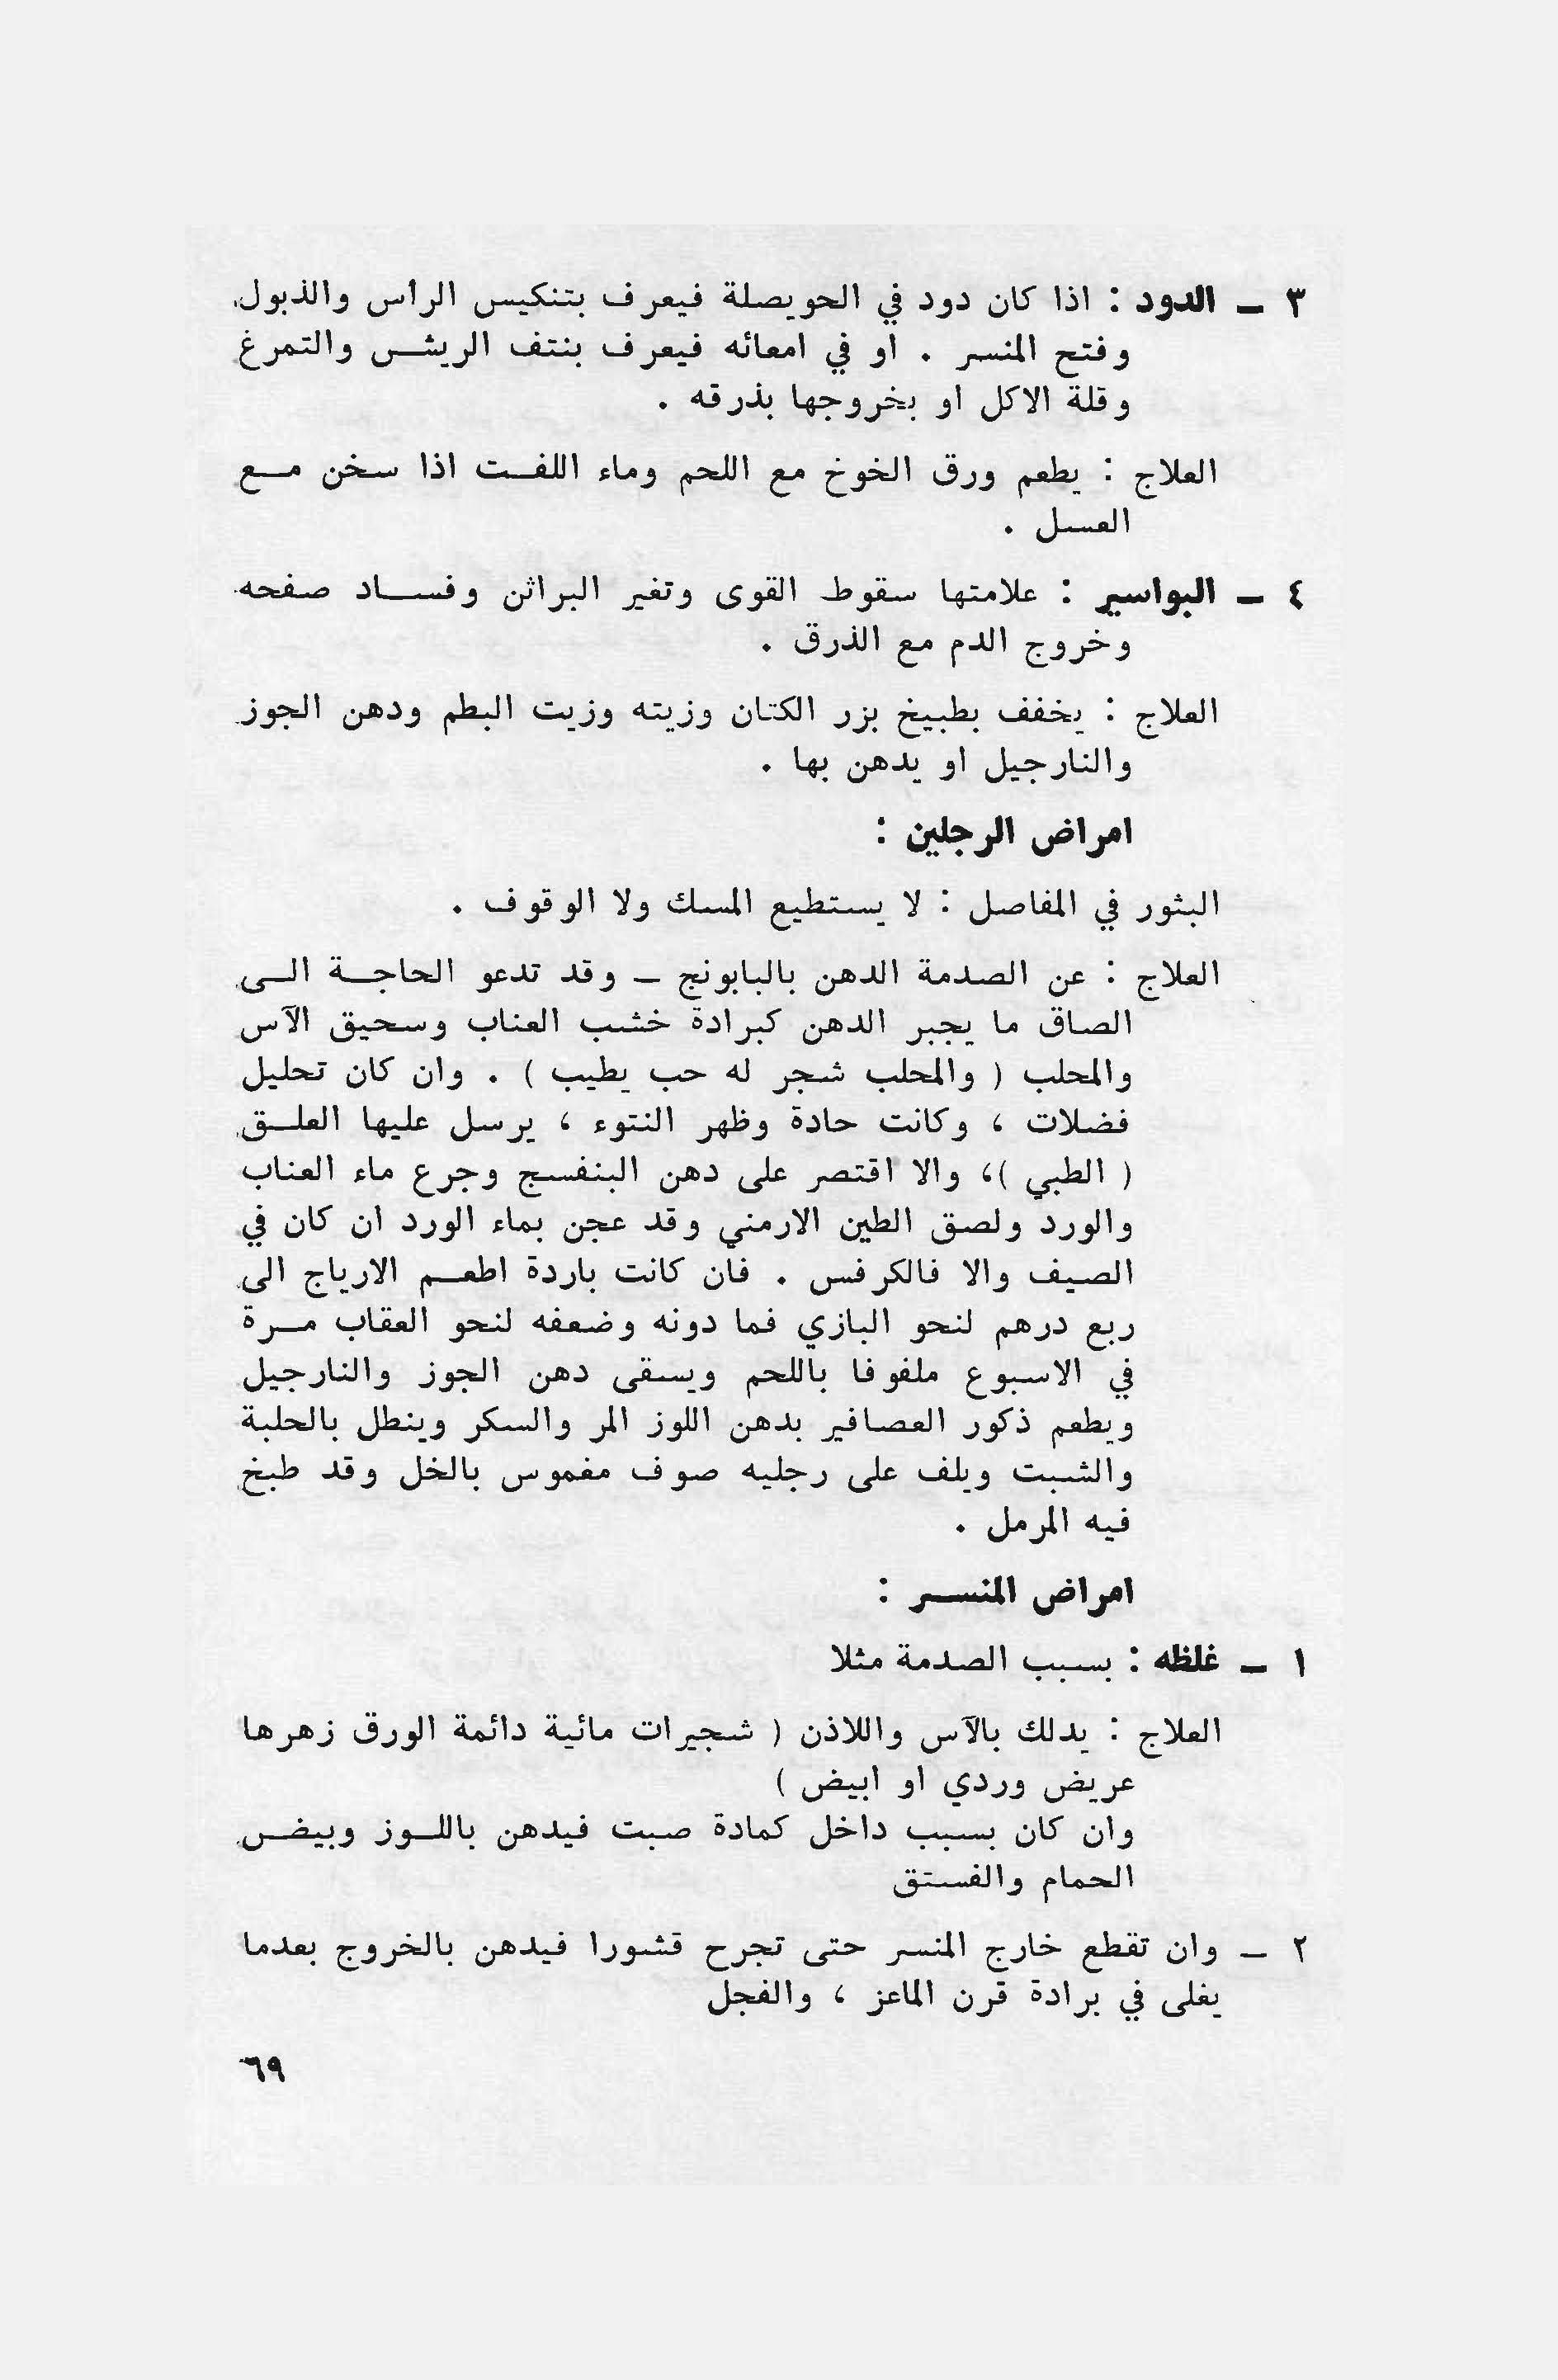 ٣ ـ الدود : اذا كان دود في الحويصلة فيعرف بتنكيس الرأس والذبول
وفتح المنسر . او في امعائه فيعرف بنتف الريش والتمرغ
وقلة الاكل او بخروجها بذرقه .
العلاج : يطعم ورق الخوخ مع اللحم وماء اللفت اذا سخن مع
العسل .
٤ ـ البواسير : علامتها سقوط القوى وتغير البراثن وفساد صفحه
وخروج الدم مع الذرق .
العلاج : يخفف بطبيخ بزر الكتان وزيته وزيت البطم ودهن الجوز
والنارجيل او يدهن بها .
امراض الرجلين :
البثور في المفاصل : لا يستطيع المسك ولا الوقوف .
العلاج : عن الصدمة الدهن بالبابونج ـ وقد تدعو الحاجة الى
الصاق ما يجبر الدهن كبرادة خشب العناب وسحيق الآس
والمحلب ( والمحلب شجر له حب يطيب ) . وان كان تحليل
فضلات ، وكانت حادة وظهر النتوء ، يرسل عليها العلق
( الطبي )، والا اقتصر على دهن البنفسج وجرع ماء العناب
والورد ولصق الطين الارمني وقد عجن بماء الورد ان كان في
الصيف والا فالكرفس . فان كانت باردة اطعم الارياج الى
ربع درهم لنحو البازي فما دونه وضعفه لنحو العقاب مرة
في الاسبوع ملفوفا باللحم ويسقى دهن الجوز والنارجيل
ويطعم ذكور العصافير بدهن اللوز المر والسكر وينطل بالحلبة
والشبت ويلف على رجليه صوف مغموس بالخل وقد طبخ
فيه المرمل .
امراض المنسر :
١ ـ غلظه : بسبب الصدمة مثلا
العلاج : يدلك بالآس واللاذن ( شجيرات مائية دائمة الورق زهرها
عريض وردي او ابيض )
وان كان بسبب داخل كمادة صبت فيدهن باللوز وبيض
الحمام والفستق
٢ ـ وان تقطع خارج المنسر حتى تجرح قشورا فيدهن بالخروج بعدما
يغلى في برادة قرن الماعز ، والفجل
٦٩